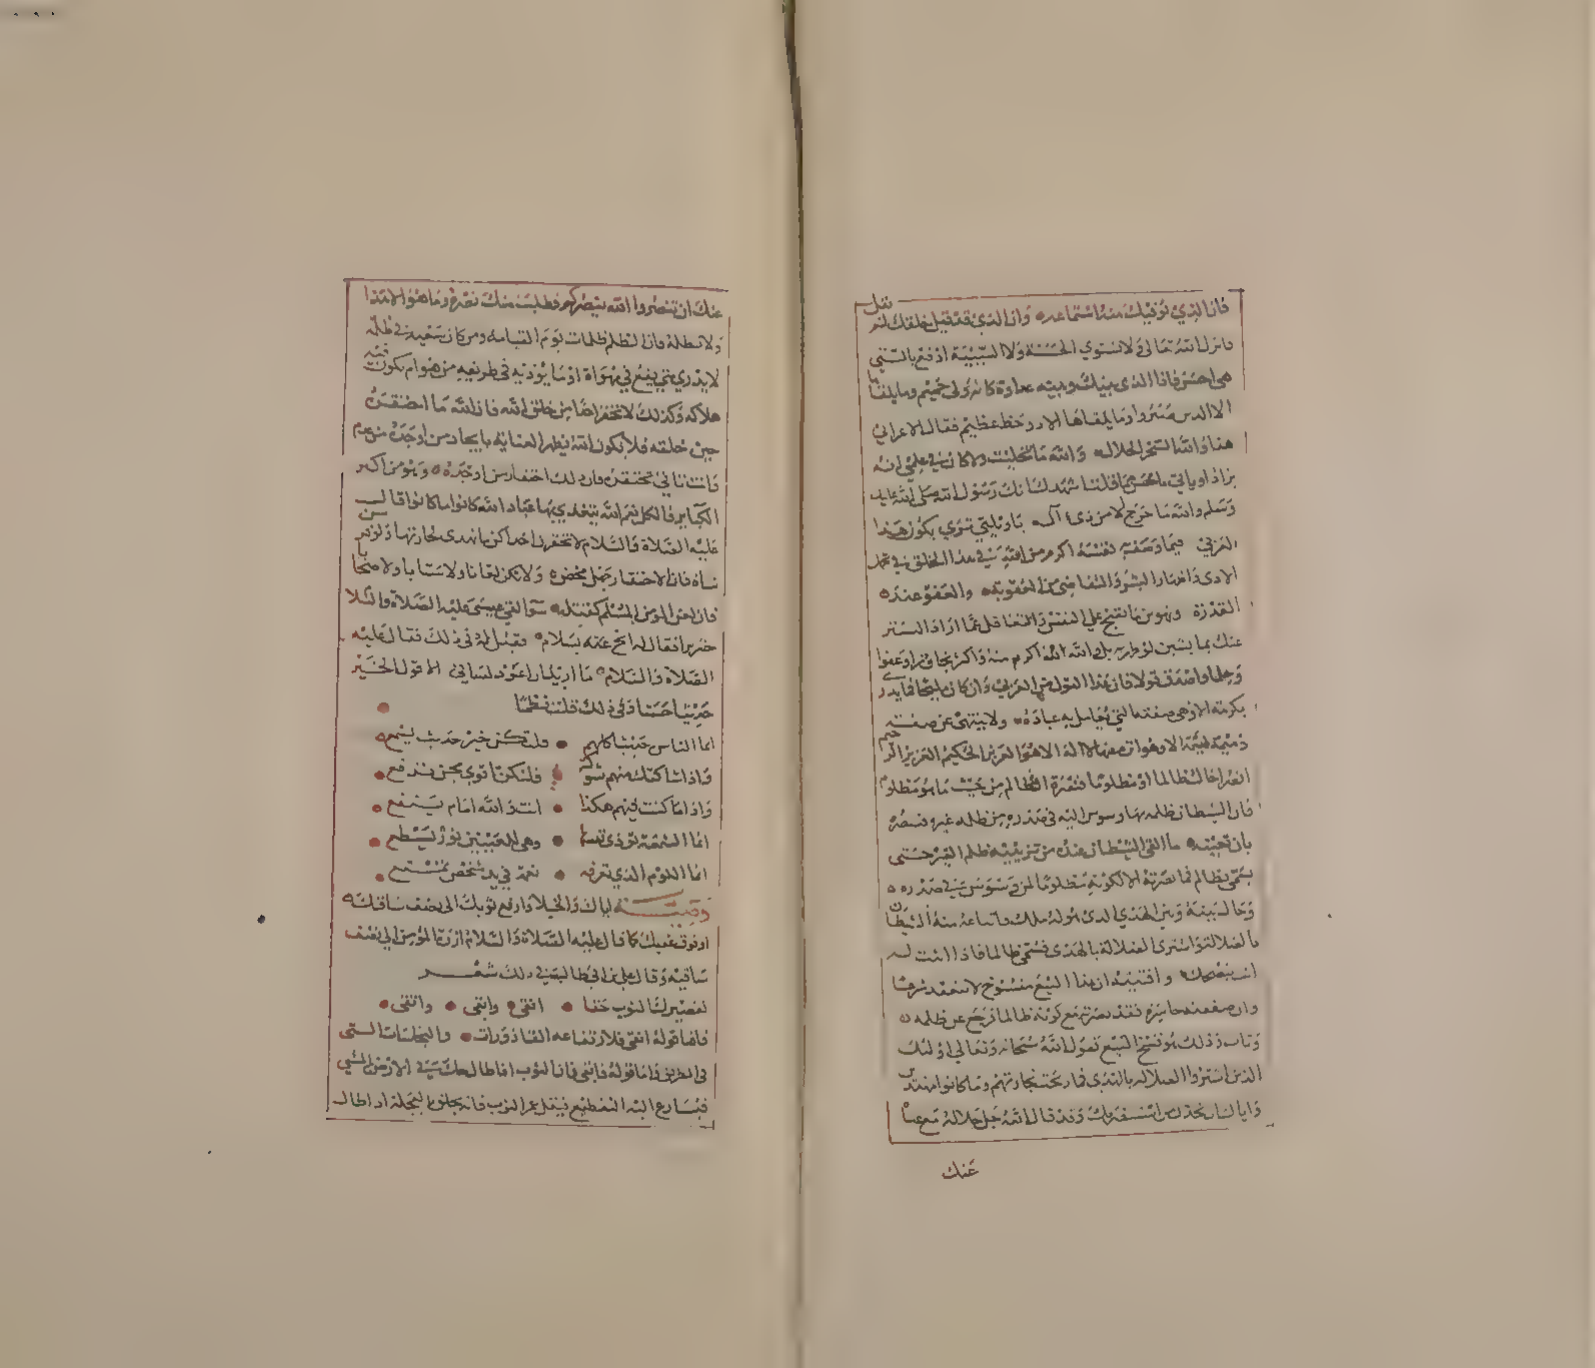 فانا الذي نوفيك منه استماعه وانا الذي قد قيل خلقك لم نقل
فانزل الله تعالى ولا تستوي الحسنة ولا السيئة ادفع بالتي
هي احسن فاذا الذي بينك وبينه عداوة كانه ولي حميم وما يلقاها
الا الذين صبروا وما يلقاها الا ذو حظ عظيم فقال الاعرابي
هذا والله السحر الحلال والله ما تخيلت ولا كان في علمي انه
يزاد او ياتي باحسن مما قلت اشهد انك رسول الله صلى الله عليه
وسلم والله ما خرج هذا الا من ذي ال يا وليتي ترى يكون هذا
العربي فيما وصف به نفسه اكرم من الله في هذا الخلق في تحمل
الاذى واظهار البشر والتغاضي عن العقوبة والعفو عند
القدرة وتهوين ما يقبح على النفس والتغافل عما اراد الستر
عنك بما يشين لو ظهر به بلى والله الله اكرم منه واكثر تجاوزا وعفوا
وحلما واصدق قولا فان هذا القول من العربي وان كان حسنا فما يدري
بكرمته الا وهي صفته التي يعامل به عباده ولا ينتهى عن صفة
ذميمة قبيحة الا وهو انزه عنها لا اله الا هو العزيز الحكيم الغفور الرحيم
انصر اخاك ظالما او مظلوما فنصرة الظالم من حيث ما هو مظلوم
فان الشيطان ظلمه بما وسوس اليه في صدره من ظلمه غيره فنصره
بان تعينه ما القى الشيطان عنده من تزيينه ظلم الغير حتى
يسمى بظالم فما نصرته الا لكونه مظلوما لمن وسوس في صدره
وحال بينه وبين الهدى الذي هو له ملك فابتاعه منه الشيطان
بالضلالة فاشترى الضلالة بالهدى فسمي ظالما فاذا انت له
انت بنصحك وافتيته ان هذا البيع مفسوخ لا ينعقد شرعا
وان صفقته خاسرة فقد نصرته مع كونه ظالما فرجع عن ظلمه
وتاب وذلك هو فسخ البيع بقول الله سبحانه وتعالى اولئك
الذين اشتروا الضلالة بالهدى فما ربحت تجارتهم وما كانوا مهتدين
وايا ان تخذل من استنصر بك وقد قال الله جل جلاله مع غناه
عنك
عنك ان تنصروا الله ينصركم فطلب منك نصره وما هو الا هذا
ولا تظلم فان الظلم ظلمات يوم القيامة ومن كان سعيه في ظلمة
لا يدري متى يقع في مهواة او ما يؤذيه في طريقه من هوام يكون فيه
هلاكه وكذلك لا تحقر احدا من خلق الله فان الله ما احتقره
حين خلقه فلا يكون الله يظهر العناية بايجاد من اوجده من عدم
وانت تاتي تحتقره فان ذلك احتقار من اوجده وهو من اكبر
الكبائر فالكل نعم الله يتغذى بها عباد الله كانوا ما كانوا قال
عليه الصلاة والسلام لا تحقرن احداكن ما تهدى لجارتها ولو فرسن
شاه فان الاحتقار جهل محض ولا تكن لعانا ولا سبابا ولا سخابا
فان لعن المومن المسلم كقتله سوا لقي عيسى عليه الصلاة والسلام
خنزيرا فقال له انج عني بسلام فقيل له في ذلك فقال عليه
الصلاة والسلام ما اريد ان اعود لساني الا قول الخير
حديثا حسنا وفي ذلك قلت نظما
انما الناس حديث كلهم فلتكن خير حديث يسمع
واذا شاكتك منهم شوكة فلتكن اقوى مجن يدفع
واذا ما كنت فيهم هكذا انت والله امام ينفع
انما الشمعة تؤذي نفسها وهي للعينين نور يسطع
انما اللوم الذي تعرفه نعمة في يد شخص يمنع
وصية اياك والخيلا وارفع ثوبك الى نصف ساقك
او فوق كعبيك كما قال عليه الصلاة والسلام ازرة المؤمن الى نصف
ساقيه وقال علي بن ابي طالب في ذلك شعر
تقصيرك الثوب حقا انقى وابقى واتقى
فاما قوله انقى فلارتفاعه عن القاذورات والنجاسات التي
في الطريق واما قوله فابقى فان الثوب اذا طال حك في الارض بالمشي
فيسارع اليه التقطيع فيقل عمر الثوب فانه يخلق بالعجلة اذا طال